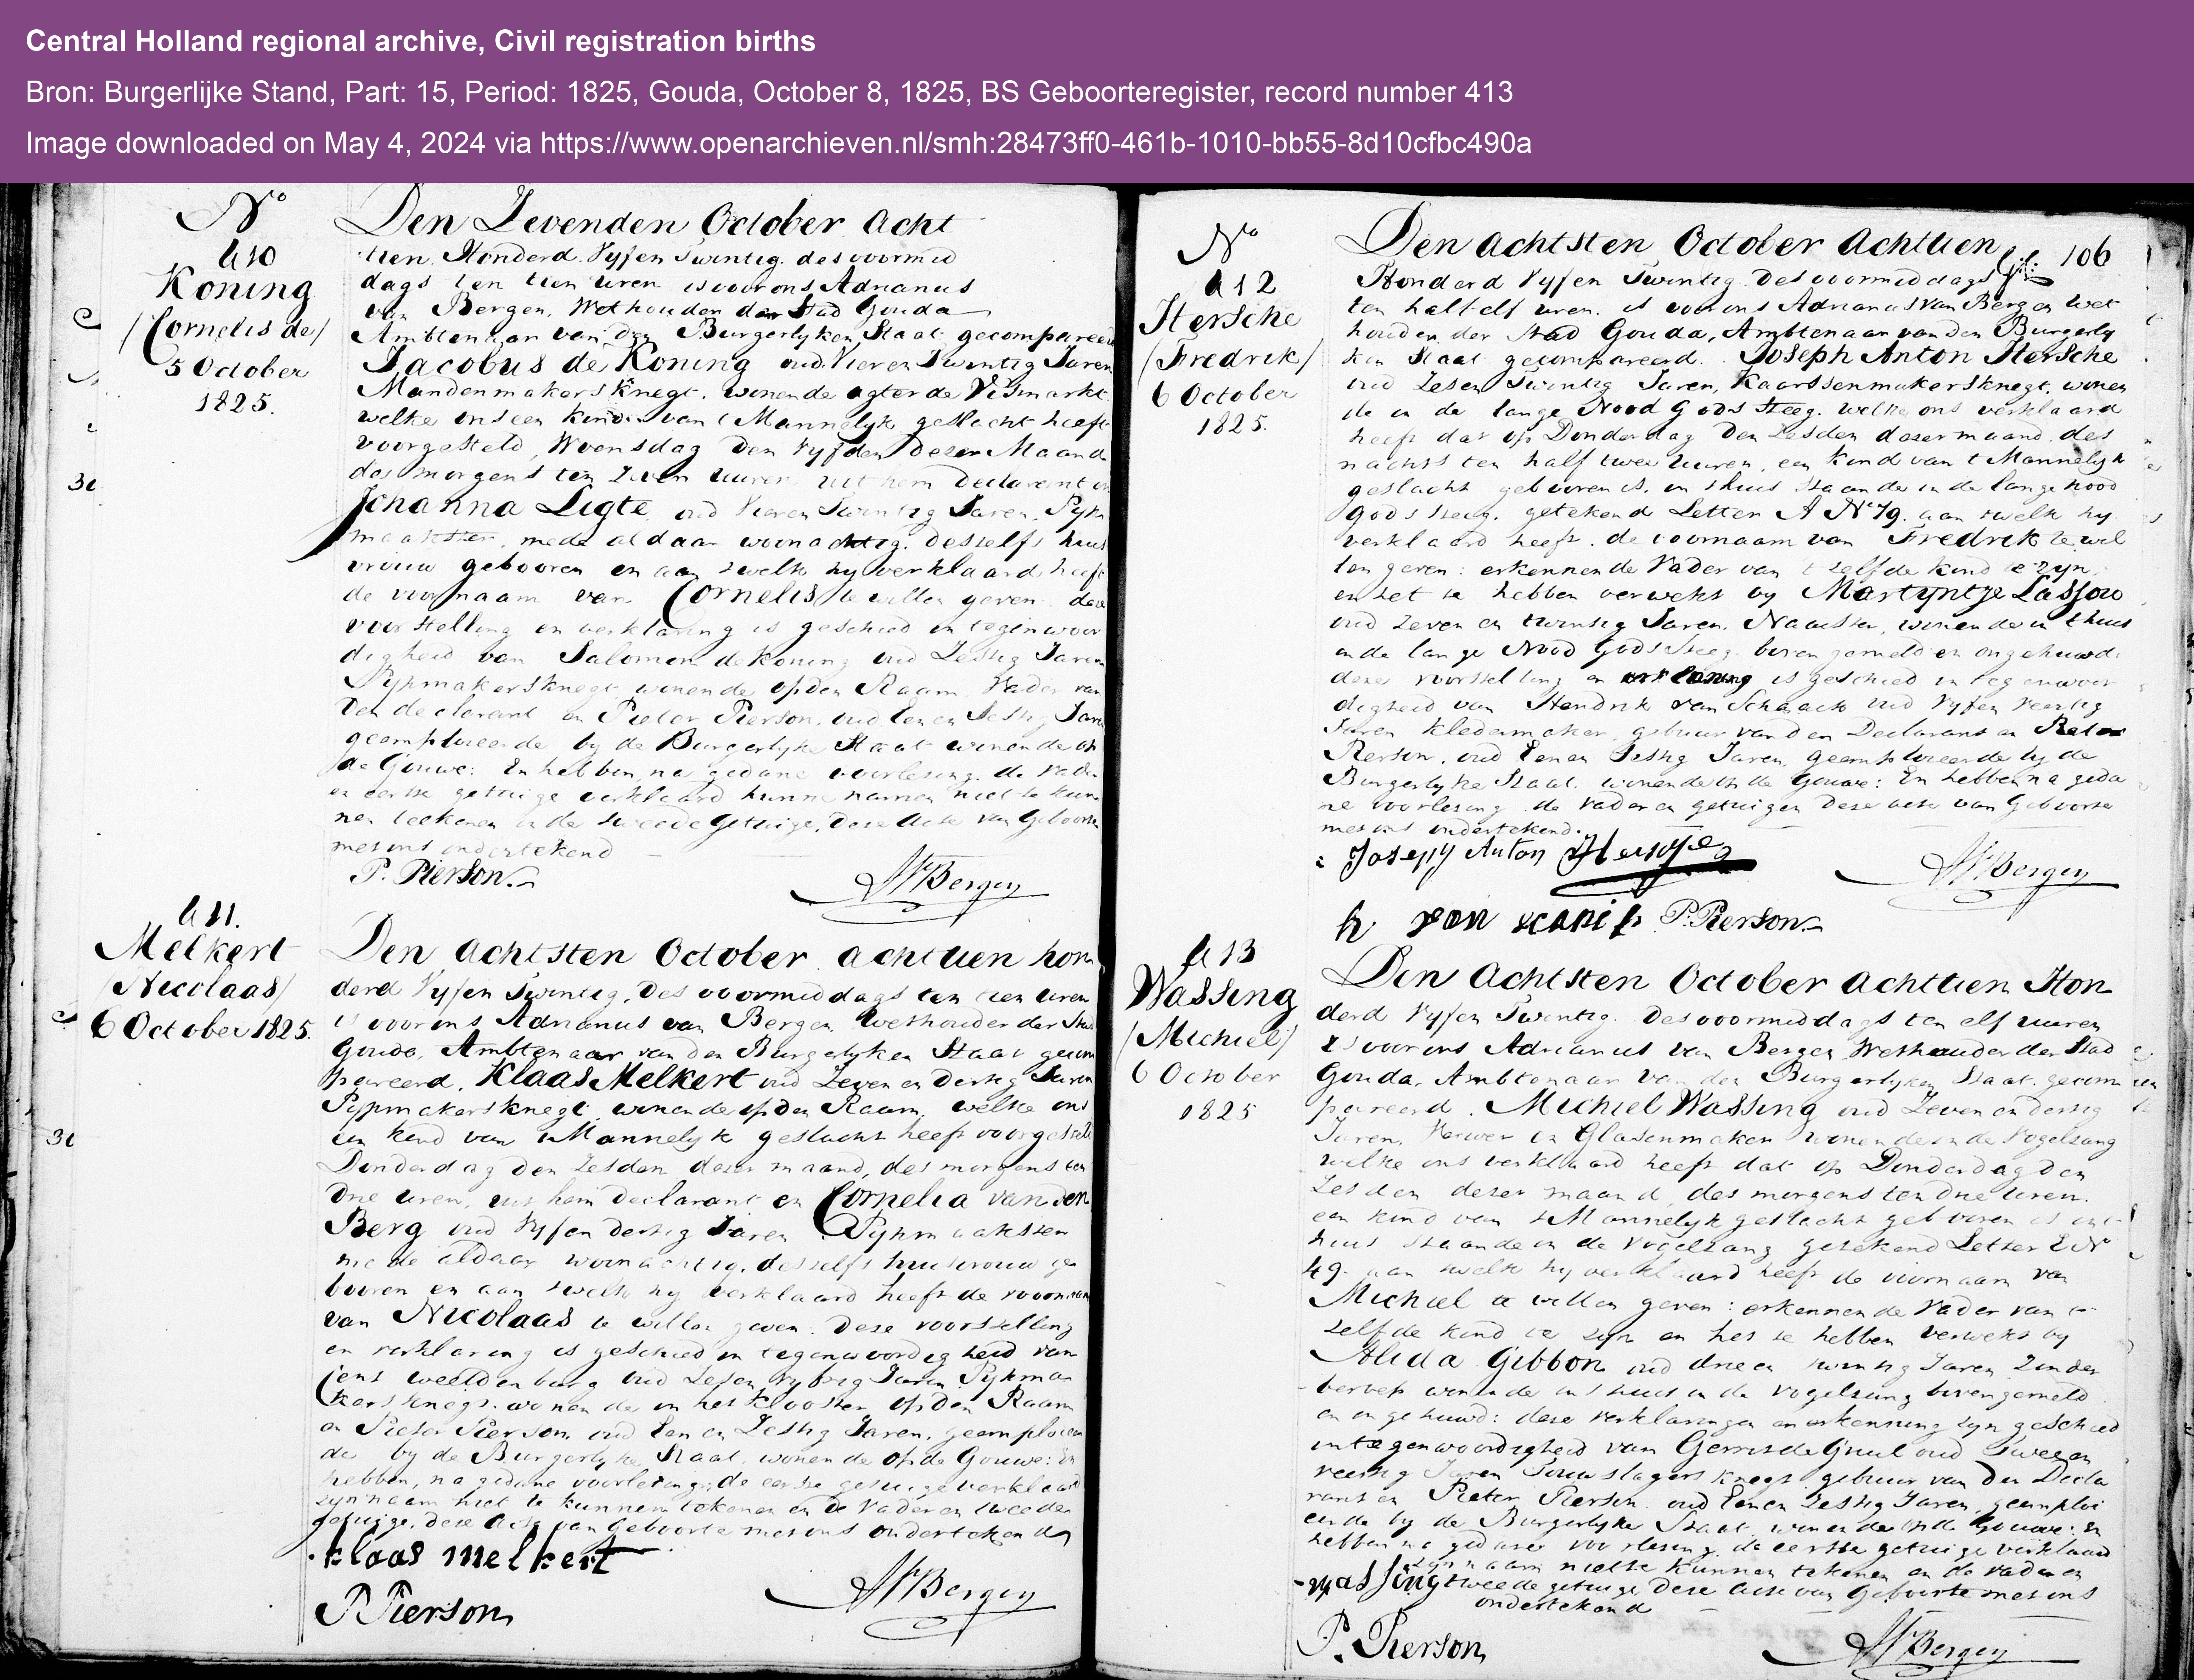 Central Holland regional archive, Civil registration births
Bron: Burgerlijke Stand, Part: 15, Period: 1825, Gouda, October 8, 1825, BS Geboorteregister, record number 413
Image downloaded on May 4, 2024 via https://www.openarchieven.nl/smh:28473ff0-461b-1010-bb55-8d10cfbc490a
No
410
Koning
/Cornelis de/
5 October
1825.
Den Zevenden October acht
tien Honderd Vyf en Twintig des voormid
dags ten tien uren is voor ons Adrianus
van Bergen, Wethouder der Stad Gouda
Ambtenaar van den Burgerlyken Staat gecompareerd
Jacobus de Koning oud Vier en Twintig Jaren
Mandenmakersknegt, wonende agter de Vismarkt
welke ons een kind van t Mannelyk geslacht heeft
voorgesteld, Woensdag den Vyfden dezer Maand
des morgens ten Zeven uuren uit hem Declarant en
Johanna Ligte oud Vier en Twintig Jaren, Pyp
maakster, mede aldaar woonachtig, desselfs huis
vrouw gebooren en aan twelk hy verklaard heeft
de voornaam van Cornelis te willen geven deze
voorstelling en verklaring is geschied in tegenwoor
digheid van Salomon de Koning oud Zestig Jaren
Pypmakersknegt wonende op den Raam Vader van
den declarant en Pieter Pierson, oud Een en Zestig Jaren
geemploieerde by de Burgerlyke Staat wonende op
de Gouwe: En hebben na gedane voorlezing de Vader
en eerste getuige verklaard hunne namen niet te kun
nen teekenen en de tweede Getuige, deze Acte van Geboorte
met ons ondertekend
P. Pierson
AVBergen
411.
Melkert
/Nicolaas/
6 October 1825.
Den achtsten October achttien hon
derd Vyf en Twintig, des voormiddags ten tien uren
is voor ons Adrianus van Bergen Wethouder der Stad
Gouda, Ambtenaar van den Burgerlyken Staat gecom
pareerd, Klaas Melkert oud Zeven en Dertig Jaren
Pypmakersknegt wonende op den Raam, welke ons
een kind van t Mannelyk geslacht heeft voorgesteld
Donderdag den Zesden dezer maand, des morgens ten
drie uren, uit hem Declarant en Cornelia van den
Berg oud Vyf en dertig Jaren Pypmaakster
mede aldaar woonachtig, desselfs huisvrouw ge
booren en aan twelk hy verklaard heeft de voornaam
van Nicolaas te willen geven. Deze voorstelling
en verklaring is geschied in tegenwoordigheid van
Jens weeldenburg oud Zes en Vyftig Jaren Pypma
kersknegt wonende in het Klooster op den Raam
en Pieter Pierson oud Een en Zestig Jaren, geemploieer
de by de Burgerlyke Staat, wonende op de Gouwe: En
hebben, na gedane voorlezing, de eerste getuige verklaard
zyn naam niet te kunnen tekenen en de Vader en tweede
getuige, deze Acte van Geboorte met ons ondertekend
klaas melkert
P Pierson
AVBergen
fol: 106
No
412
Hersche
/Fredrik/
6 October
1825.
Den achtsten October Achttien
Honderd Vyf en Twintig des voormiddags
ten half elf uren is voor ons Adrianus van Bergen Wet
houder der Stad Gouda, Ambtenaar van den Burgerly
ken Staat gecompareerd. Joseph Anton Hersche
oud Zes en Twintig Jaren, Kaarssenmakersknegt, wonen
de in de lange Nood Gods Steeg, welke ons verklaard
heeft dat op Donderdag den Zesden dezer maand des
nachts ten half twee uuren, een kind van t Mannelyk
geslacht gebooren is, in thuis staande in de lange nood
gods steeg, getekend Letter A No 79. aan twelk hy
verklaard heeft de voornaam van Fredrik te wil
len geven: erkennende Vader van t zelfde kind te zyn
en het te hebben verwekt by Martyntje Lassow
oud Zeven en twintig Jaren, Naaister, wonende in thuis
in de lange Nood Gods Steeg boven gemeld en ongehuwd
deze voorstelling en verklaring is geschied in tegenwoor
digheid van Hendrik van Schaack oud Vyf en Veertig
Jaren kledermaker, gebuur van den Declarant en Pieter
Pierson, oud Een en Zestig Jaren, geemploieerde by de
Burgerlyke Staat, wonende op de Gouwe: En hebben na geda
ne voorlezing de Vader en getuigen deze acte van Geboorte
met ons ondertekend.
Joseph Anton Hersche
AVBergen
h van P. Pierson
413
Wassing
/Michiel/
6 October
1825
Den Achtsten October Achttien Hon
derd Vyf en Twintig. Des voormiddags ten elf uuren
is voor ons Adrianus van Bergen Wethouder der Stad
Gouda, Ambtenaar van den Burgerlyken Staat, gecom
pareerd. Michiel Wassing oud Zeven en dertig
Jaren, Verwer en Glasenmaker wonende in de Vogelzang
welke ons verklaard heeft dat op Donderdag den
Zesden dezer maand, des morgens ten drie uren
een kind van t Mannelyk geslacht gebooren is in t
huis staande in de Vogelzang getekend Letter E No
49. aan twelk hy verklaard heeft de voornaam van
Michiel te willen geven: erkennende Vader van t
zelfde kind te zyn en het te hebben verwekt by
Alida Gibbon oud drie en twintig Jaren Zonder
beroep wonende in t huis in de Vogelzang boven gemeld
en ongehuwd: deze verklaringen en erkenning zyn geschied
in tegenwoordigheid van Gerrit de Gruil oud Twee en
veertig Jaren Touwslagersknegt gebuur van den Decla
rant en Pieter Pierson oud Een en Zestig Jaren, geemploi
eerde by de Burgerlyke Staat, wonende op de Gouwe: En
hebben na gedane voorlezing, de eerste getuige verklaard
zyn naam niet te kunnen tekenen en de Vader en
Massing tweede getuige Deze acte van Geboorte met ons
ondertekend
P. Pierson
AVBergen